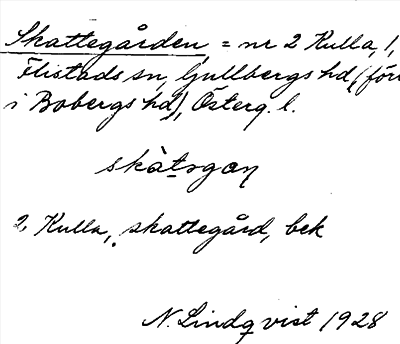 Skattegården, = nr 2 Kulla, 1,
Flistads sn, Gullbergs hd, (förr
i Bobergs hd), Österg. l.
skàtsgaṇ
2 Kulla, skattegård, bek
N. Lindqvist 1928